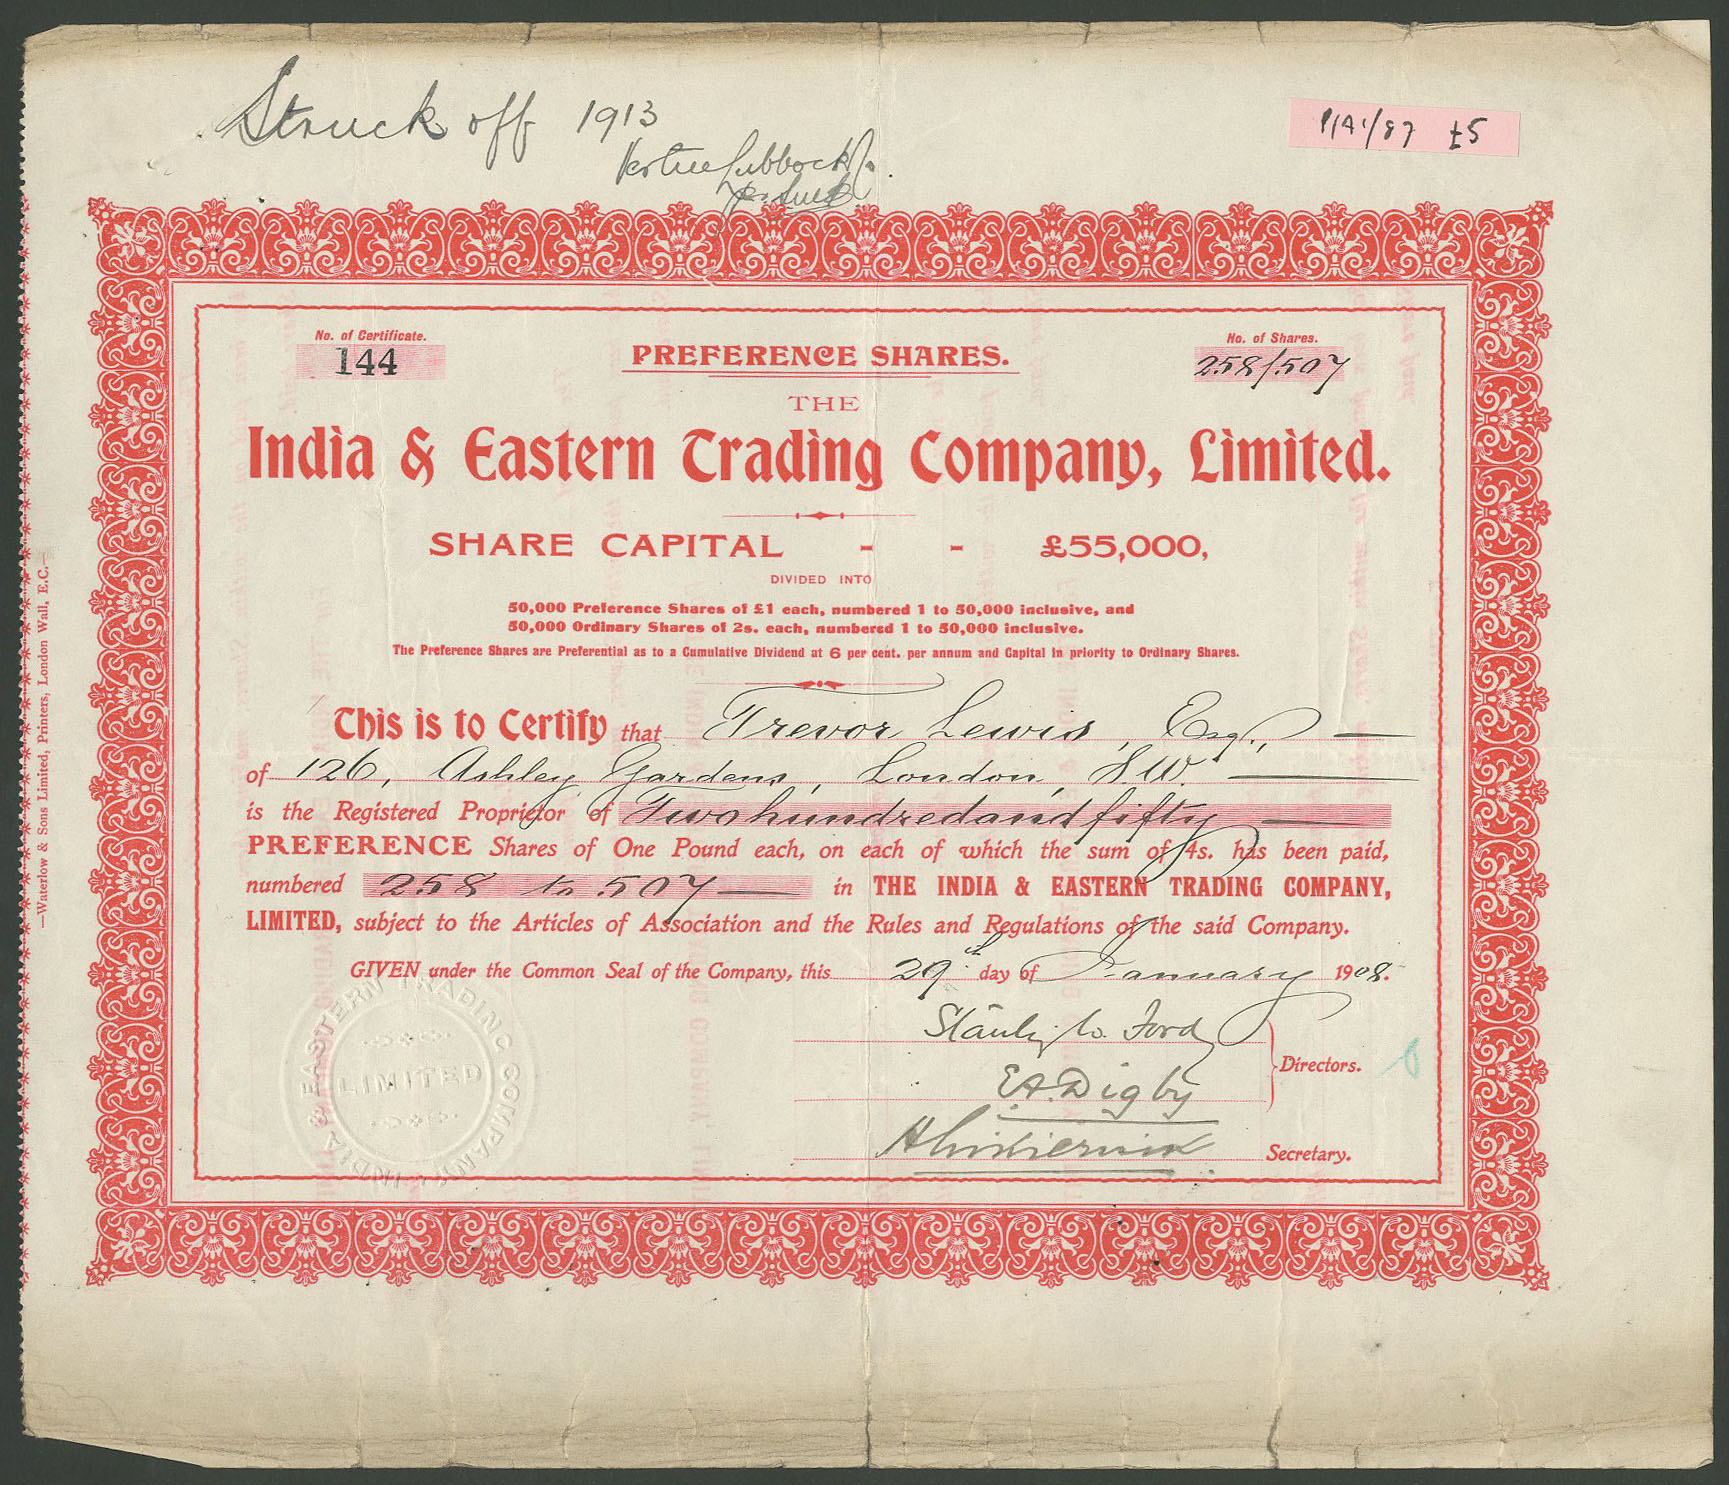 Struck off 1913
Lubbock
P/A1/87 £5
No. of Certificate.
144
PREFERENCE SHARES.
No. of Shares.
258/507
THE
India & Eastern Trading Company, Limited.
SHARE CAPITAL - - £55,000,
DIVIDED INTO
50,000 Preference Shares of £1 each, numbered 1 to 50,000 inclusive, and
50,000 Ordinary Shares of 2s. each, numbered 1 to 50,000 inclusive.
The Preference Shares are Preferential as to a Cumulative Dividend at 6 per cent. per annum and Capital in priority to Ordinary Shares.
This is to Certify that Trevor Lewis, Esq.,
of 126, Ashley Gardens, London, S.W.
is the Registered Proprietor of Two hundred and fifty
PREFERENCE Shares of One Pound each, on each of which the sum of 4s. has been paid,
numbered 258 to 507 in THE INDIA & EASTERN TRADING COMPANY,
LIMITED, subject to the Articles of Association and the Rules and Regulations of the said Company.
GIVEN under the Common Seal of the Company, this 29th day of January 1908.
Stanley W. Ford
E.A. Digby
Directors.
Secretary.
INDIA & EASTERN TRADING COMPANY
LIMITED
—Waterlow & Sons Limited, Printers, London Wall, E.C.—